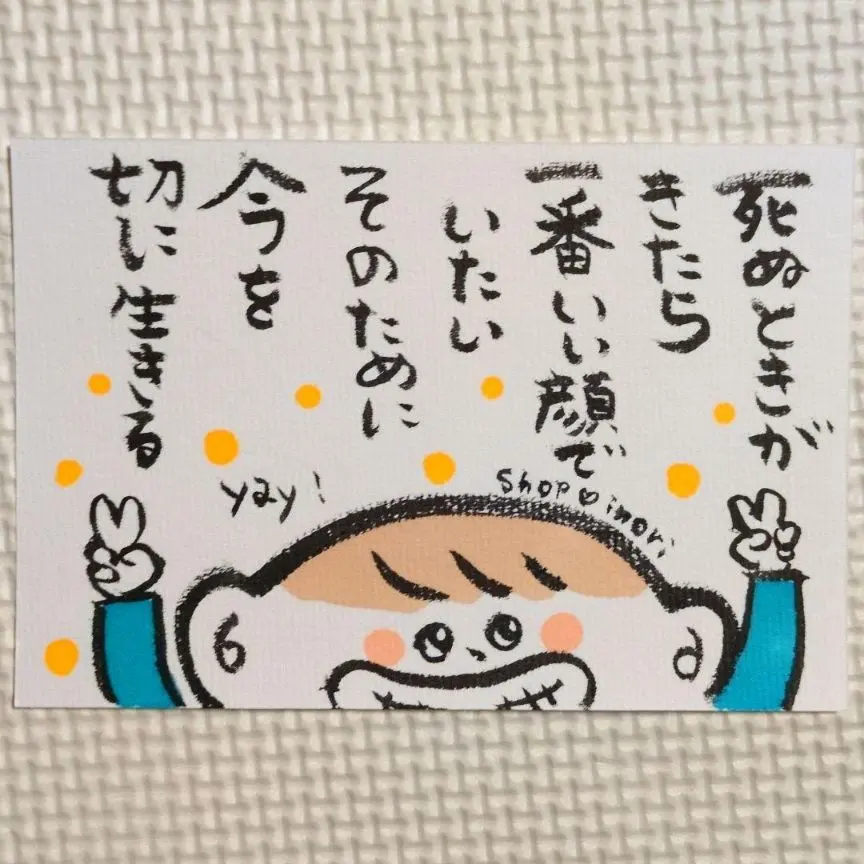 死ぬときが
きたら
一番いい顔で
いたい
そのために
今を
切に生きる
yay!
shop♡inori